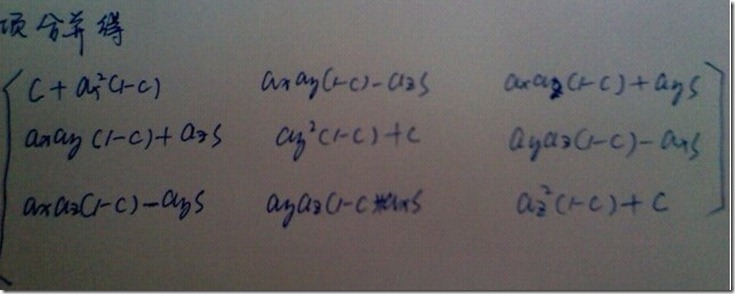 项合并得
C + ax²(1-C) axay(1-C) - azS axaz(1-C) + ayS
axay(1-C) + azS ay²(1-C) + C ayaz(1-C) - axS
axaz(1-C) - ayS ayaz(1-C)+axS az²(1-C) + C